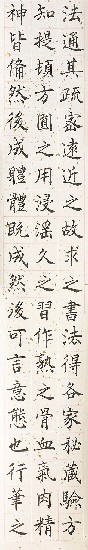 法通其疏密遠近之故求之書法得各家秘藏驗方
知提頓方圓之用浸淫久之習作熟之骨血氣肉精
神皆備然後成體體既成然後可言意態也行筆之